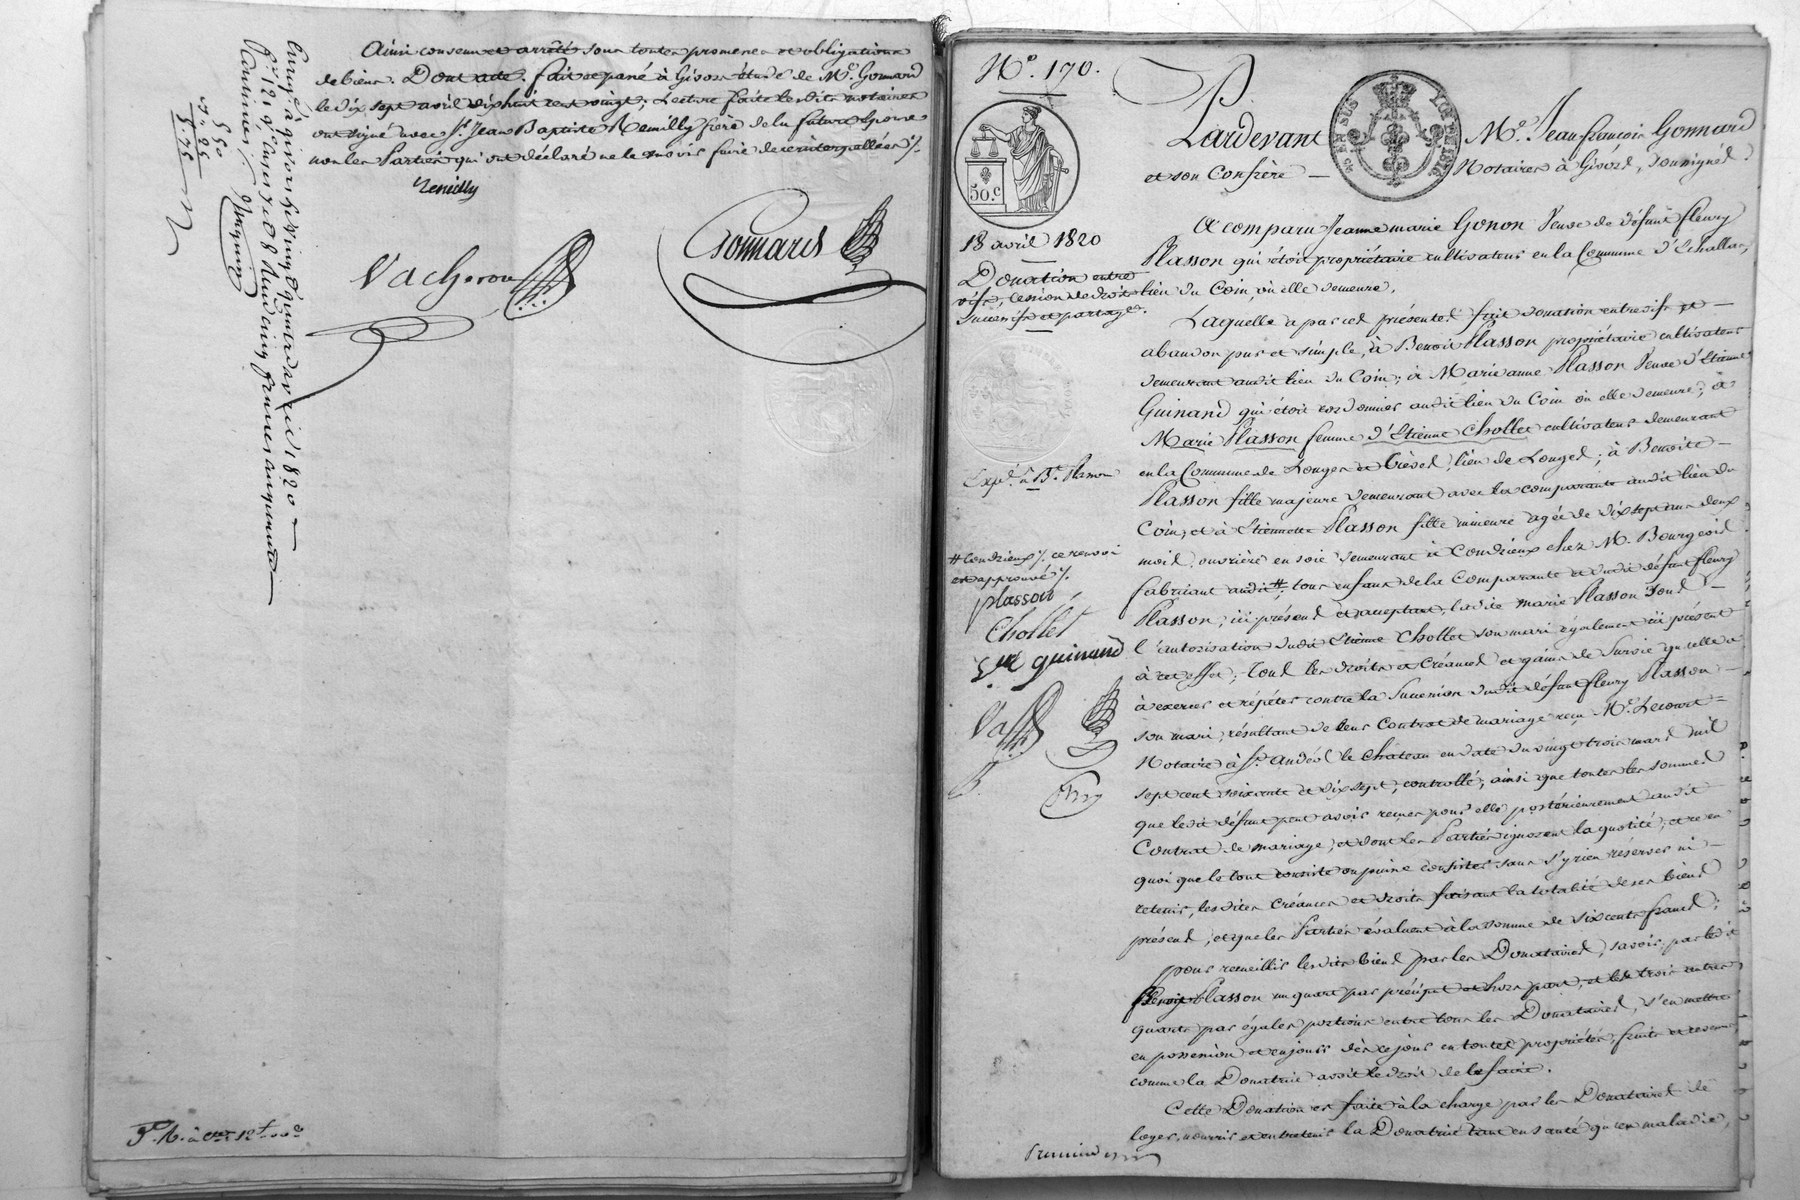 Ainsi convenu et arrêté sous toutes promesses et obligations
de biens. Dont acte. fait et passé à Givors étude de Me. Gonnard
le dix sept avril dix huit cent vingt; Lecture faite les dits notaires
ont signé avec Sr. Jean Baptiste Remilly frère de la future Epouse
non les Parties qui ont déclaré ne le savoir faire de ce interpellées ./.
Remilly
Vacheron
Gonnard
Enregé. à givors le vingt quatre avril 1820
cinq francs cinquante
centimes
5 50
55
N°. 170.
50.c
18 avril 1820
Donation entre
vifs, cession de droits
successifs et partage.
Expé. à Bt. Plasson
# Condrieux ./. ce renvoi
est approuvé ./.
plasson
Chollet
guinand
Va
EN SUS
Pardevant Me. Jean françois Gonnard
et son Confrère — Notaires à Givors, soussignés.
A comparu Jeanne marie Gonon Veuve de défunt fleury
Plasson qui étoit propriétaire cultivateur en la Commune d'Echallas,
lieu du Coin, où elle demeure.
Laquelle a par ces présentes fait donation entrevifs et —
abandon pur et simple, à Benoit Plasson propriétaire cultivateur
demeurant audit lieu du Coin; à Marie anne Plasson Veuve d'Etienne
Guinand qui étoit cordonnier audit lieu du Coin où elle demeure; à
Marie Plasson femme d'Etienne Chollet cultivateur demeurant
en la Commune de Longes et Trèves, lieu de Longes; à Benoite —
Plasson fille majeure demeurant avec la comparante audit lieu du
Coin, et à Etiennette Plasson fille mineure agée de dix sept ans deux
mois, ouvrière en soie demeurant à Condrieux chez M. Bourgeois
fabricant audit #, tous enfans de la Comparante et dudit défunt fleury
Plasson, ici présens et acceptant, ladite marie Plasson sous —
l'autorisation dudit Etienne Chollet son mari également ici présent
à cet effet; Tous les droits et Créances et gains de Survie qu'elle a
à exercer et répéter contre la Succession dudit défunt fleury Plasson —
son mari, résultant de leur Contrat de mariage reçu Me. Lecourt
Notaire à St. Andéol le Chateau en date du vingt trois mars mil
sept cent soixante et dix sept, controllé; ainsi que toutes les sommes
que ledit défunt peut avoir reçues pour elle postérieurement audit
Contrat de mariage, et dont les Parties ignorent la quotité, et ce en
quoi que le tout consiste ou puisse consister sans s'y rien reserver ni —
retenir, lesdites Créances et droits faisant la totalité de ses biens
présens, et que les Parties évaluent à la somme de six cents francs;
pour recueillir lesdits biens par les Donataires, savoir, par ledit
Benoit Plasson un quart par préciput et hors part, et les trois autres
quarts par égales portions entre tous les Donataires, s'en mettre
en possession et en jouir dès ce jour en toutes propriétés, fruits et revenus,
comme la Donatrice avoit le droit de le faire.
Cette Donation est faite à la charge par les Donataires de
loger, nourrir et entretenir la Donatrice tant en santé qu'en maladie,